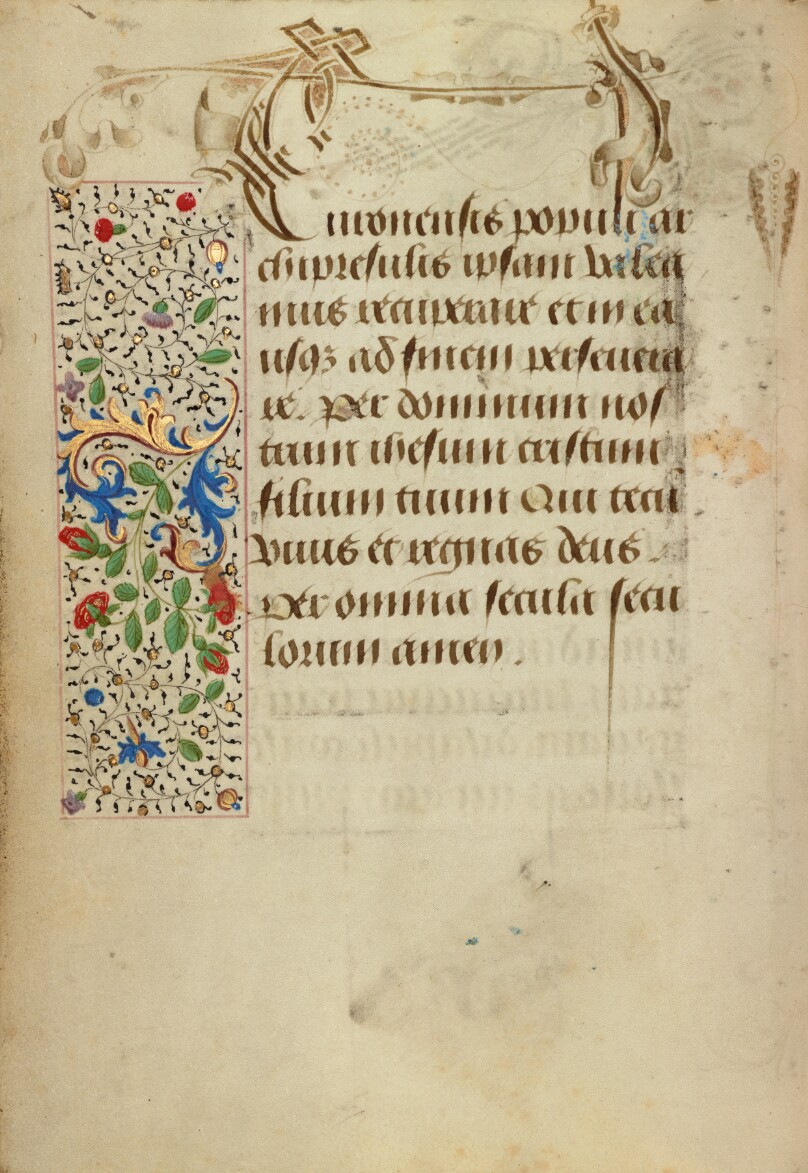 Turonensis populi ar
chipresulis ipsam valea
mus recuperare et in ea
usqz ad finem persevera
re. Per dominum nos
trum ihesum cristum
filium tuum Qui tecū
vivis et regnas deus.
Per omnia secula secu
lorum amen.